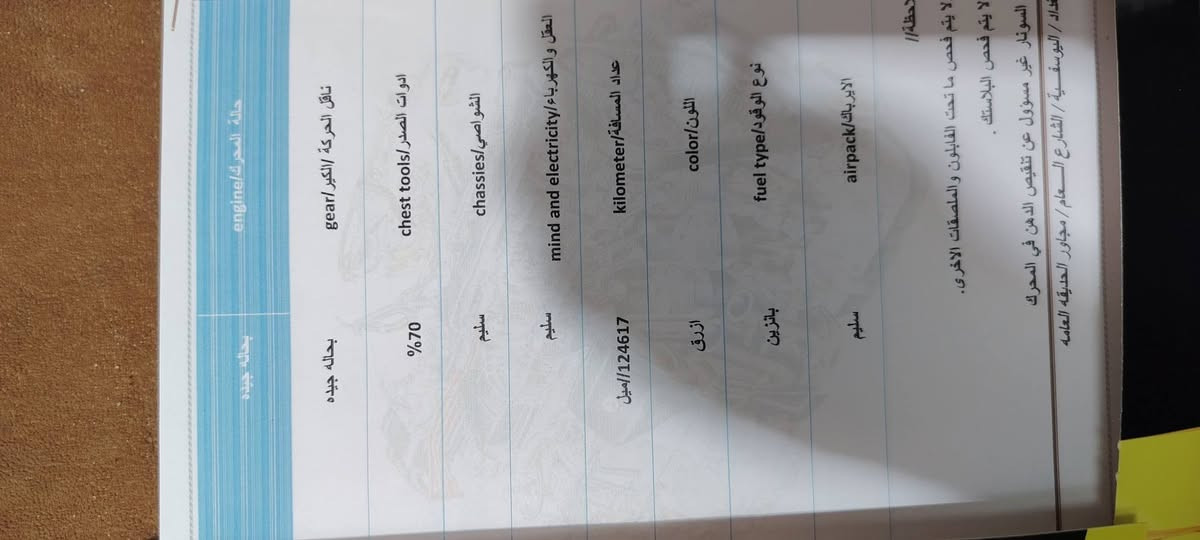 حالة المحرك/engine بحاله جيده
ناقل الحركة /الكير/gear بحاله جيده
ادوات الصدر/chest tools %70
الشواصي/chassies سليم
العقل والكهرباء/mind and electricity سليم
عداد المسافة/kilometer 124617//ميل
اللون/color ازرق
نوع الوقود/fuel type بانزين
الايرباك/airpack سليم
لا يتم فحص ما تحت الفايلون والملصقات الاخرى.
لا يتم فحص البلاستك .
السونار غير مسؤول عن تنقيص الدهن في المحرك
/ اليوسفية / الشارع العام / مجاور الحديقه العامه